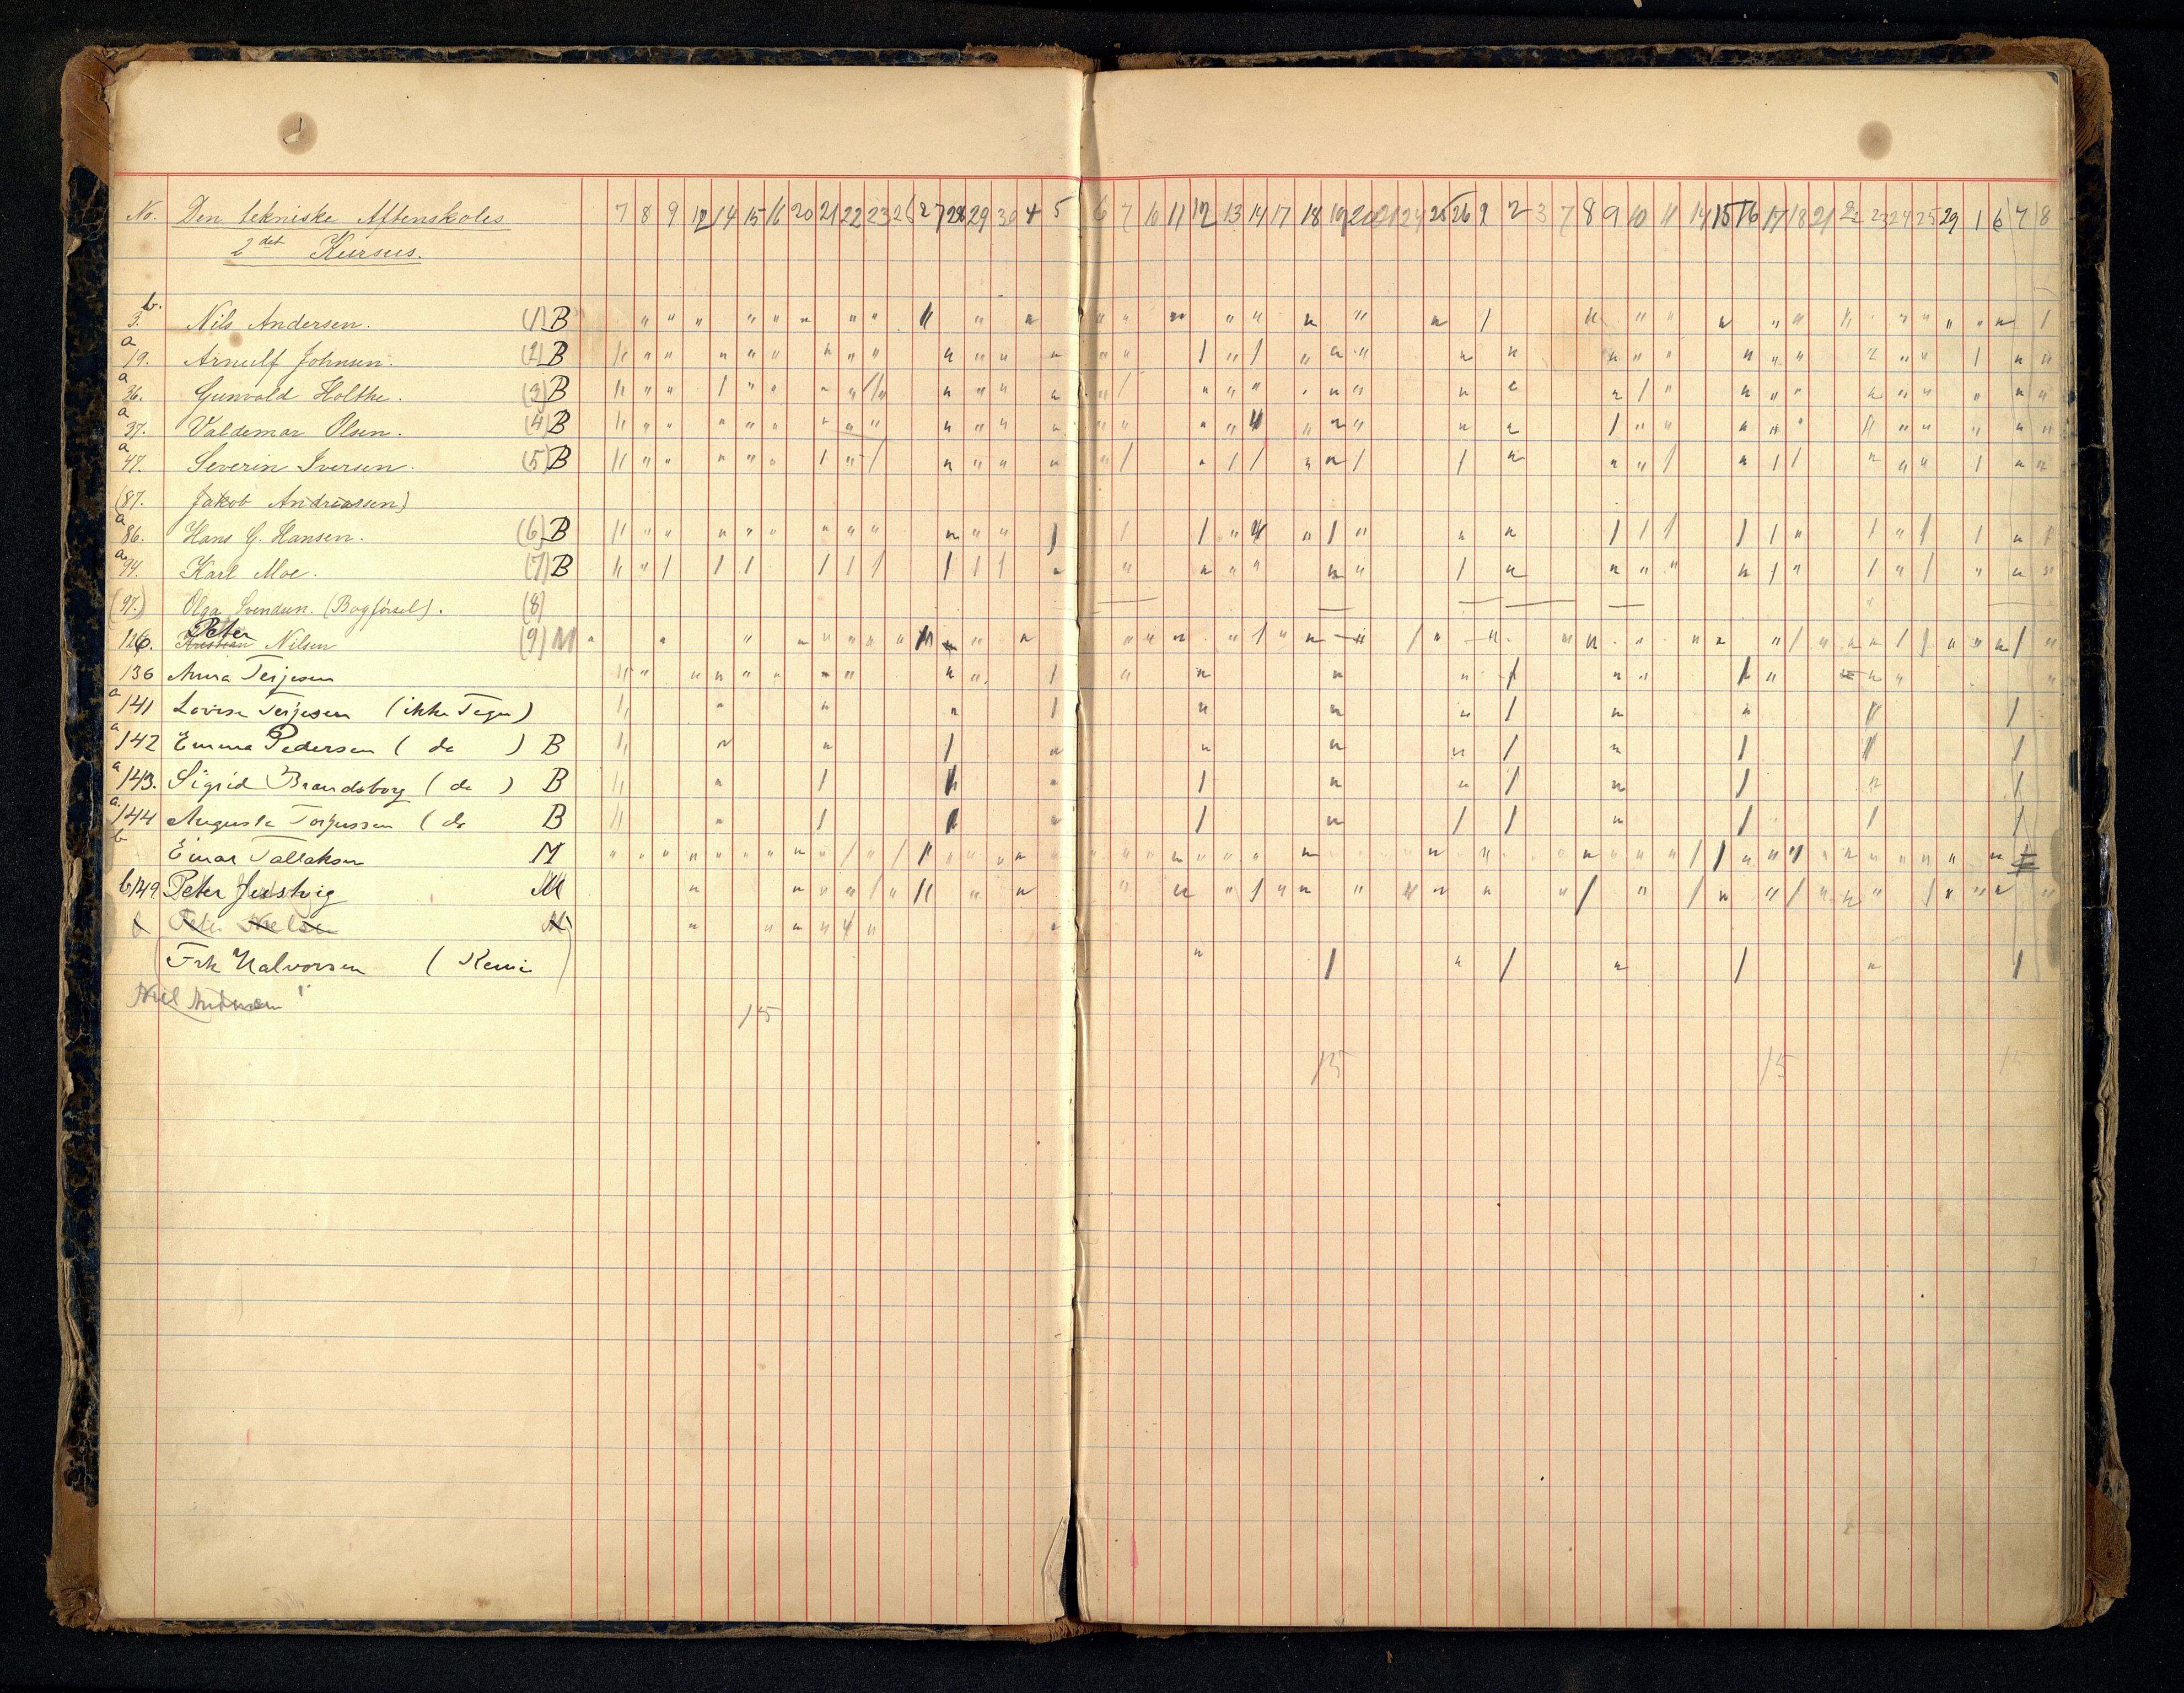 No. Den tekniske Aftenskoles 7 8 9 12 14 15 16 20 21 22 23 26 27 28 29 30 4 5 6 7 10 11 12 13 14 17 18 19 20 21 24 25 26 1 2 3 7 8 9 10 11 14 15 16 17 18 21 22 23 24 25 29 1 6 7 8
2det Kursus.
b. 3. Nils Andersen. (1) B
a 19. Arnulf Johnsen. (2) B
a 36. Gunvald Holthe. (3) B
a 37. Valdemar Olsen. (4) B
a 47. Severin Iversen. (5) B
(87. Jakob Andreassen)
a 86. Hans G. Hansen. (6) B
a 94. Karl Moe. (7) B
(97.) Olga Svendsen. (Bogførsel). (8)
126. Kristian Peter Nilsen (9) M
136 Anna Terjesen
a 141 Lovise Terjesen (ikke Tegn)
a 142 Emma Pedersen ( do ) B
a 143. Sigrid Brandsborg ( do ) B
a. 144 Augusta Torjussen ( do B
b Einar Tallaksen M
b 149 Peter Justvig M
b Peter Nielsen M
Frk Halvorsen ( Kemi )
15
15 15 15